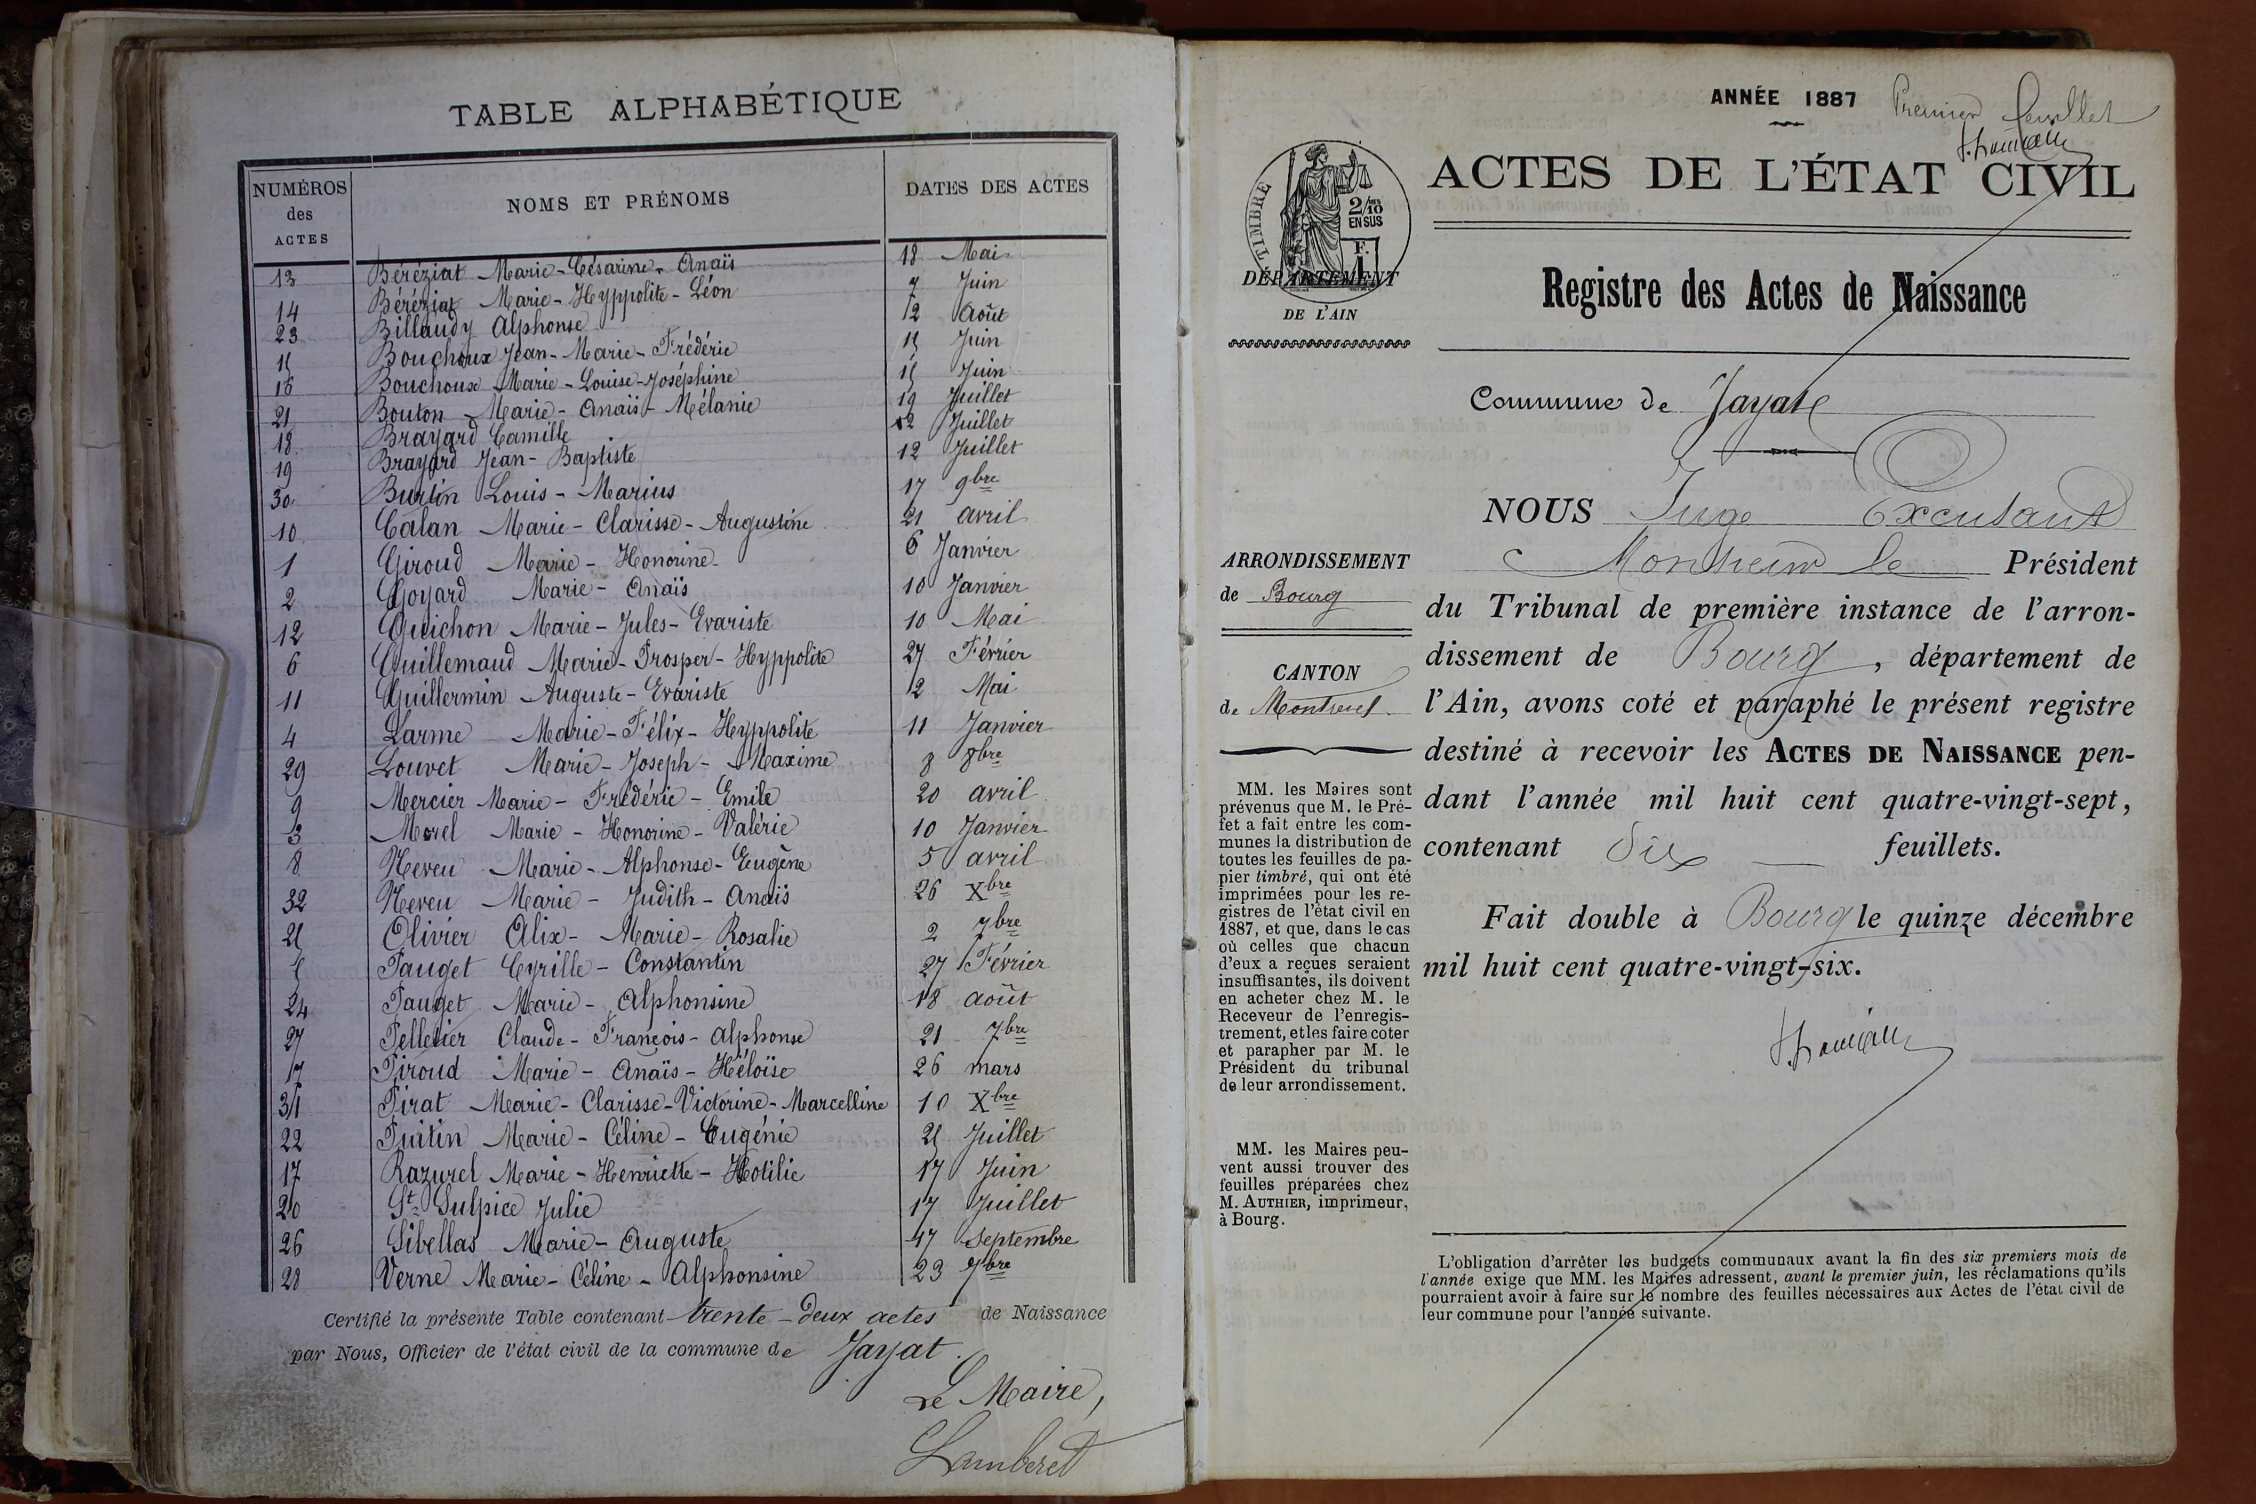 TABLE ALPHABÉTIQUE
NUMÉROS des ACTES NOMS ET PRÉNOMS DATES DES ACTES
13 Béréziat Marie-Césarine-Anaïs 18 Mai
14 Béréziat Marie-Hyppolite-Léon 7 Juin
23 Billaudy Alphonse 12 Août
15 Bouchoux Jean-Marie-Frédéric 15 Juin
16 Bouchoux Marie-Louise-Joséphine 15 Juin
21 Bouton Marie-Anaïs-Mélanie 19 Juillet
18 Brayard Camille 12 Juillet
19 Brayard Jean-Baptiste 12 Juillet
30 Burtin Louis-Marius 17 9bre
10 Calan Marie-Clarisse-Augustine 21 avril
1 Giroud Marie-Honorine 6 Janvier
2 Goyard Marie-Anaïs 10 Janvier
12 Guichon Marie-Jules-Evariste 10 Mai
6 Guillemaud Marie-Prosper-Hyppolite 27 Février
11 Guillermin Auguste-Evariste 2 Mai
4 Larme Marie-Félix-Hyppolite 11 Janvier
29 Louvet Marie-Joseph-Maxime 8 8bre
9 Mercier Marie-Frédéric-Emile 20 avril
3 Morel Marie-Honorine-Valérie 10 Janvier
8 Neveu Marie-Alphonse-Eugène 5 avril
32 Neveu Marie-Judith-Anaïs 26 Xbre
25 Olivier Alix-Marie-Rosalie 2 7bre
5 Pauget Cyrille-Constantin 27 Février
24 Pauget Marie-Alphonsine 18 août
27 Pelletier Claude-François-Alphonse 21 7bre
17 Piroud Marie-Anaïs-Héloïse 26 mars
31 Pirat Marie-Clarisse-Victorine-Marcelline 10 Xbre
22 Puitin Marie-Céline-Eugénie 25 Juillet
17 Razurel Marie-Henriette-Hotilie 17 Juin
20 St Sulpice Julie 17 Juillet
26 Sibellas Marie-Auguste 17 Septembre
28 Verne Marie-Céline-Alphonsine 23 7bre
Certifié la présente Table contenant trente-deux actes de Naissance
par Nous, Officier de l'état civil de la commune de Jayat.
Le Maire,
Lamberet
ANNÉE 1887 Premier feuillet
TIMBRE
2/10 EN SUS
F. 1
ACTES DE L'ÉTAT CIVIL
DÉPARTEMENT
DE L'AIN
Registre des Actes de Naissance
Commune de Jayat
ARRONDISSEMENT
de Bourg
CANTON
de Montrevel
MM. les Maires sont
prévenus que M. le Pré-
fet a fait entre les com-
munes la distribution de
toutes les feuilles de pa-
pier timbré, qui ont été
imprimées pour les re-
gistres de l'état civil en
1887, et que, dans le cas
où celles que chacun
d'eux a reçues seraient
insuffisantes, ils doivent
en acheter chez M. le
Receveur de l'enregis-
trement, et les faire coter
et parapher par M. le
Président du tribunal
de leur arrondissement.
MM. les Maires peu-
vent aussi trouver des
feuilles préparées chez
M. AUTHIER, imprimeur,
à Bourg.
NOUS Juge Excusant
Monsieur le Président
du Tribunal de première instance de l'arron-
dissement de Bourg, département de
l'Ain, avons coté et paraphé le présent registre
destiné à recevoir les ACTES DE NAISSANCE pen-
dant l'année mil huit cent quatre-vingt-sept,
contenant dix feuillets.
Fait double à Bourg le quinze décembre
mil huit cent quatre-vingt-six.
L'obligation d'arrêter les budgets communaux avant la fin des six premiers mois de
l'année exige que MM. les Maires adressent, avant le premier juin, les réclamations qu'ils
pourraient avoir à faire sur le nombre des feuilles nécessaires aux Actes de l'état civil de
leur commune pour l'année suivante.